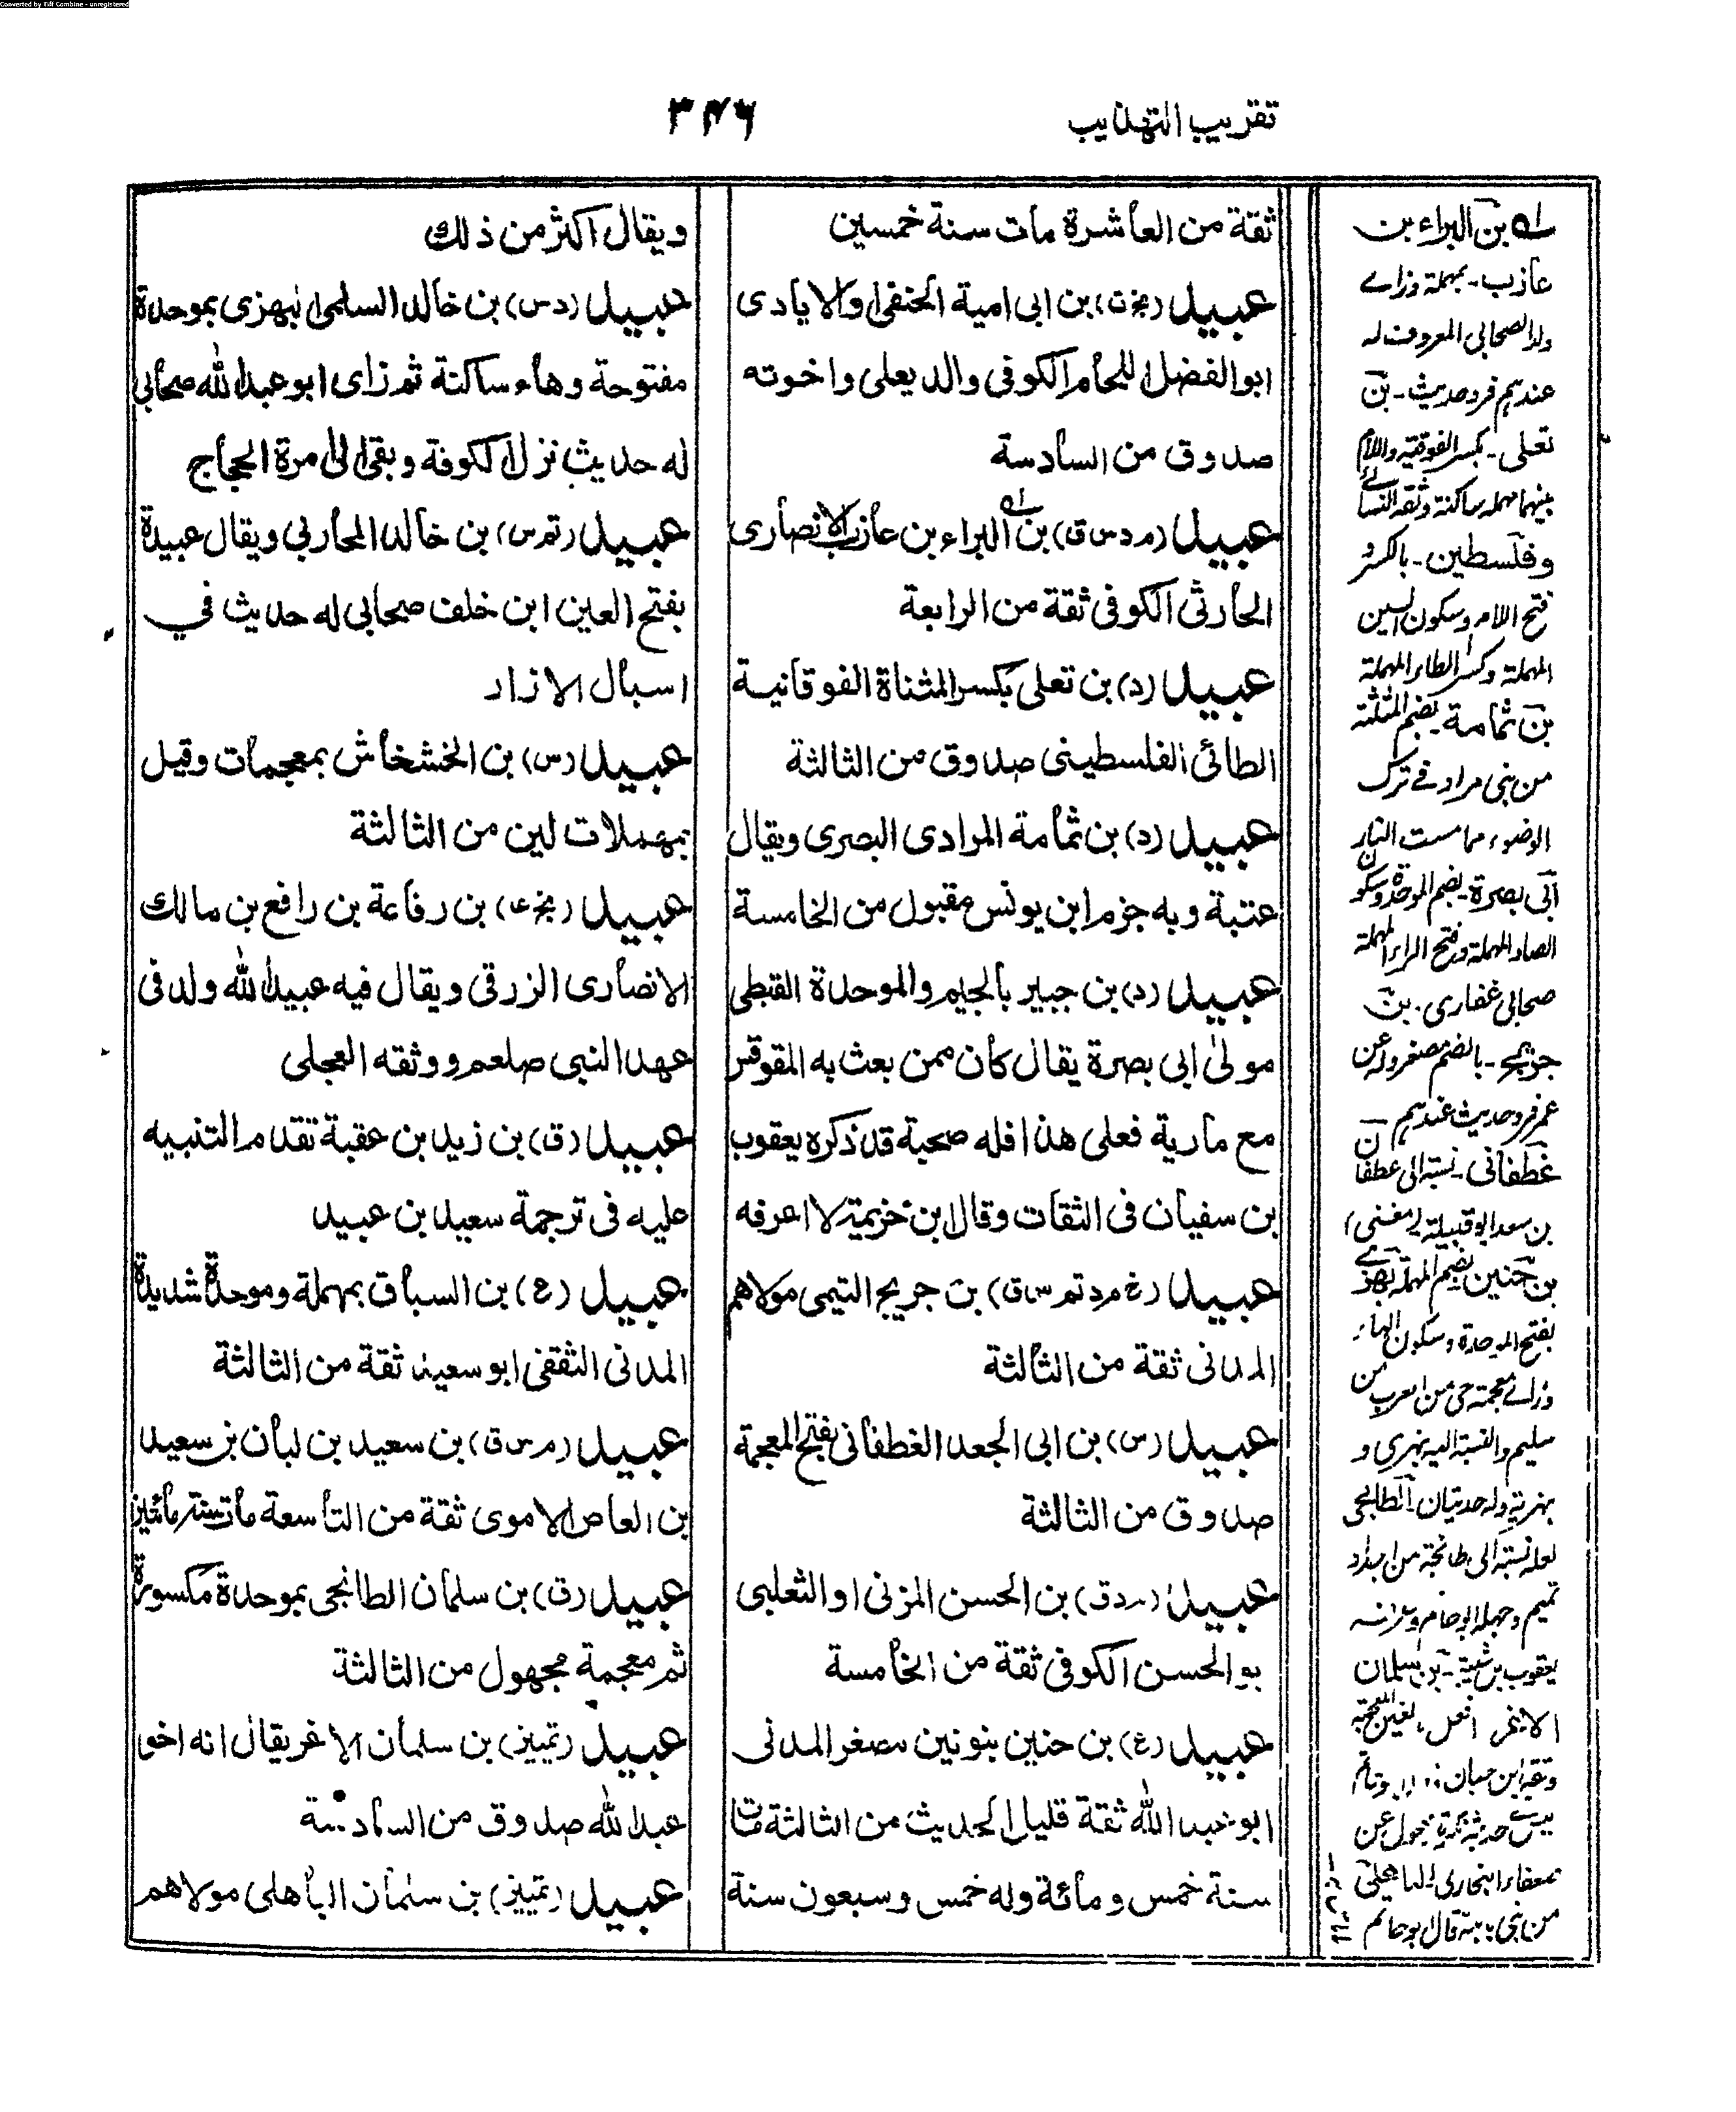 Converted by Tiff Combine - unregistered
تقريب التهذيب
٣٤٦
ثقة من العاشرة مات سنة خمسين
عبيد (بخ ت) بن ابى امية الحنفى والايادى
ابو الفضل اللحام الكوفى والد يعلى واخوته
صدوق من السادسة
عبيد (م د س ق) بن البراء بن عازب الانصارى
الحارثى الكوفى ثقة من الرابعة
عبيد (د) بن تعلى بكسر المثناة الفوقانية
الطائى الفلسطينى صدوق من الثالثة
عبيد (د) بن ثمامة المرادى البصرى ويقال
عتبة وبه جزم ابن يونس مقبول من الخامسة
عبيد (د) بن جبير بالجيم والموحدة القبطى
مولى ابى بصرة يقال كان ممن بعث به المقوقس
مع مارية فعلى هذا فله صحبة قد ذكره يعقوب
بن سفيان فى الثقات وقال ابن خزيمة لا اعرفه
عبيد (خ م د تم س ق) بن جريج التيمى مولاهم
المدنى ثقة من الثالثة
عبيد (س) بن ابى الجعد الغطفانى بفتح المعجمة
صدوق من الثالثة
عبيد (م د ق) بن الحسن المزنى او الثعلبى
بو الحسن الكوفى ثقة من الخامسة
عبيد (ع) بن حنين بنونين مصغر المدنى
ابو عبد الله ثقة قليل الحديث من الثالثة مات
سنة خمس ومائة وله خمس وسبعون سنة
ويقال اكثر من ذلك
عبيد (د س) بن خالد السلمى البهزى بموحدة
مفتوحة وهاء ساكنة ثم زاى ابو عبد الله صحابى
له حديث نزل الكوفة وبقى الى امرة الحجاج
عبيد (تم س) بن خالد المحاربى ويقال عبيدة
بفتح العين ابن خلف صحابى له حديث في
اسبال الازار
عبيد (س) بن الخشخاش بمعجمات وقيل
بمهملات لين من الثالثة
عبيد (بخ عا) بن رفاعة بن رافع بن مالك
الانصارى الزرقى ويقال فيه عبيد الله ولد فى
عهد النبى صلعم ووثقه العجلى
عبيد (ق) بن زيد بن عقبة تقدم التنبيه
عليه فى ترجمة سعيد بن عبيد
عبيد (ع) بن السباق بمهملة وموحدة شديدة
المدنى الثقفى ابو سعيد ثقة من الثالثة
عبيد (م س ق) بن سعيد بن ابان بن سعيد
بن العاص الاموى ثقة من التاسعة مات سنة مائتين
عبيد (ق) بن سلمان الطابخى بموحدة مكسورة
ثم معجمة مجهول من الثالثة
عبيد (تمييز) بن سلمان الاغر يقال انه اخو
عبد الله صدوق من السادسة
عبيد (تمييز) بن سلمان الباهلى مولاهم
له بن البراء بن
عازب - بمهملة وزاے
ولد الصحابى المعروف له
عندهم فرد حديث - بن
تعلى - بكسر الفوقية واللام
بينهما مهملة ساكنة وثقه النسائے
وفلسطين - بالكسر و
فتح اللام وسكون السين
المهملة وكسر الطاء المهملة
بن ثمامة - بضم المثلثة
من بنى مراد فے ترك
الوضوء مما مست النار
ابى بصرة - بضم الموحدة وسكون
الصاد المهملة وفتح الراء المهملة
صحابى غفارى - بن
جريج - بالضم مصغر وله عن
عمر فرد حديث عندهم
غطفانى - نسبة الى غطفان
بن سعد ابو قبيلة (مغنى)
بن حنين بضم المهملة بهزے
بفتح الموحدة وسكون الهاء
وزاے معجمة حى من العرب من
سليم والنسبة اليه بهزى و
بهزية وله حديثان - الطابخى
لعله نسبة الى طابخة من اجداد
تميم وجهله ابو حاتم
يعقوب بن شيبة - بن سلمان
الاغر افعل بغين معجمة
وثقه ابن حبان
من بنى
قال ابو حاتم